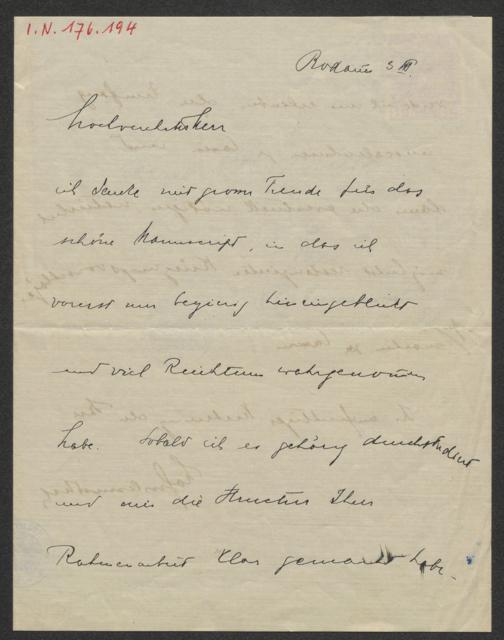 I.N. 176.194
Rodaun 3 XI.
Hochverehrter Herr
ich danke mit grosser Freude für das
schöne Manuscript, in das ich
vorerst nur begierig hineingeblickt
und viel Reichtum wahrgenommen
habe. Sobald ich es gehörig durchstudiert
und mir die Structur Ihrer
Rahmenarbeit klar gemacht habe.